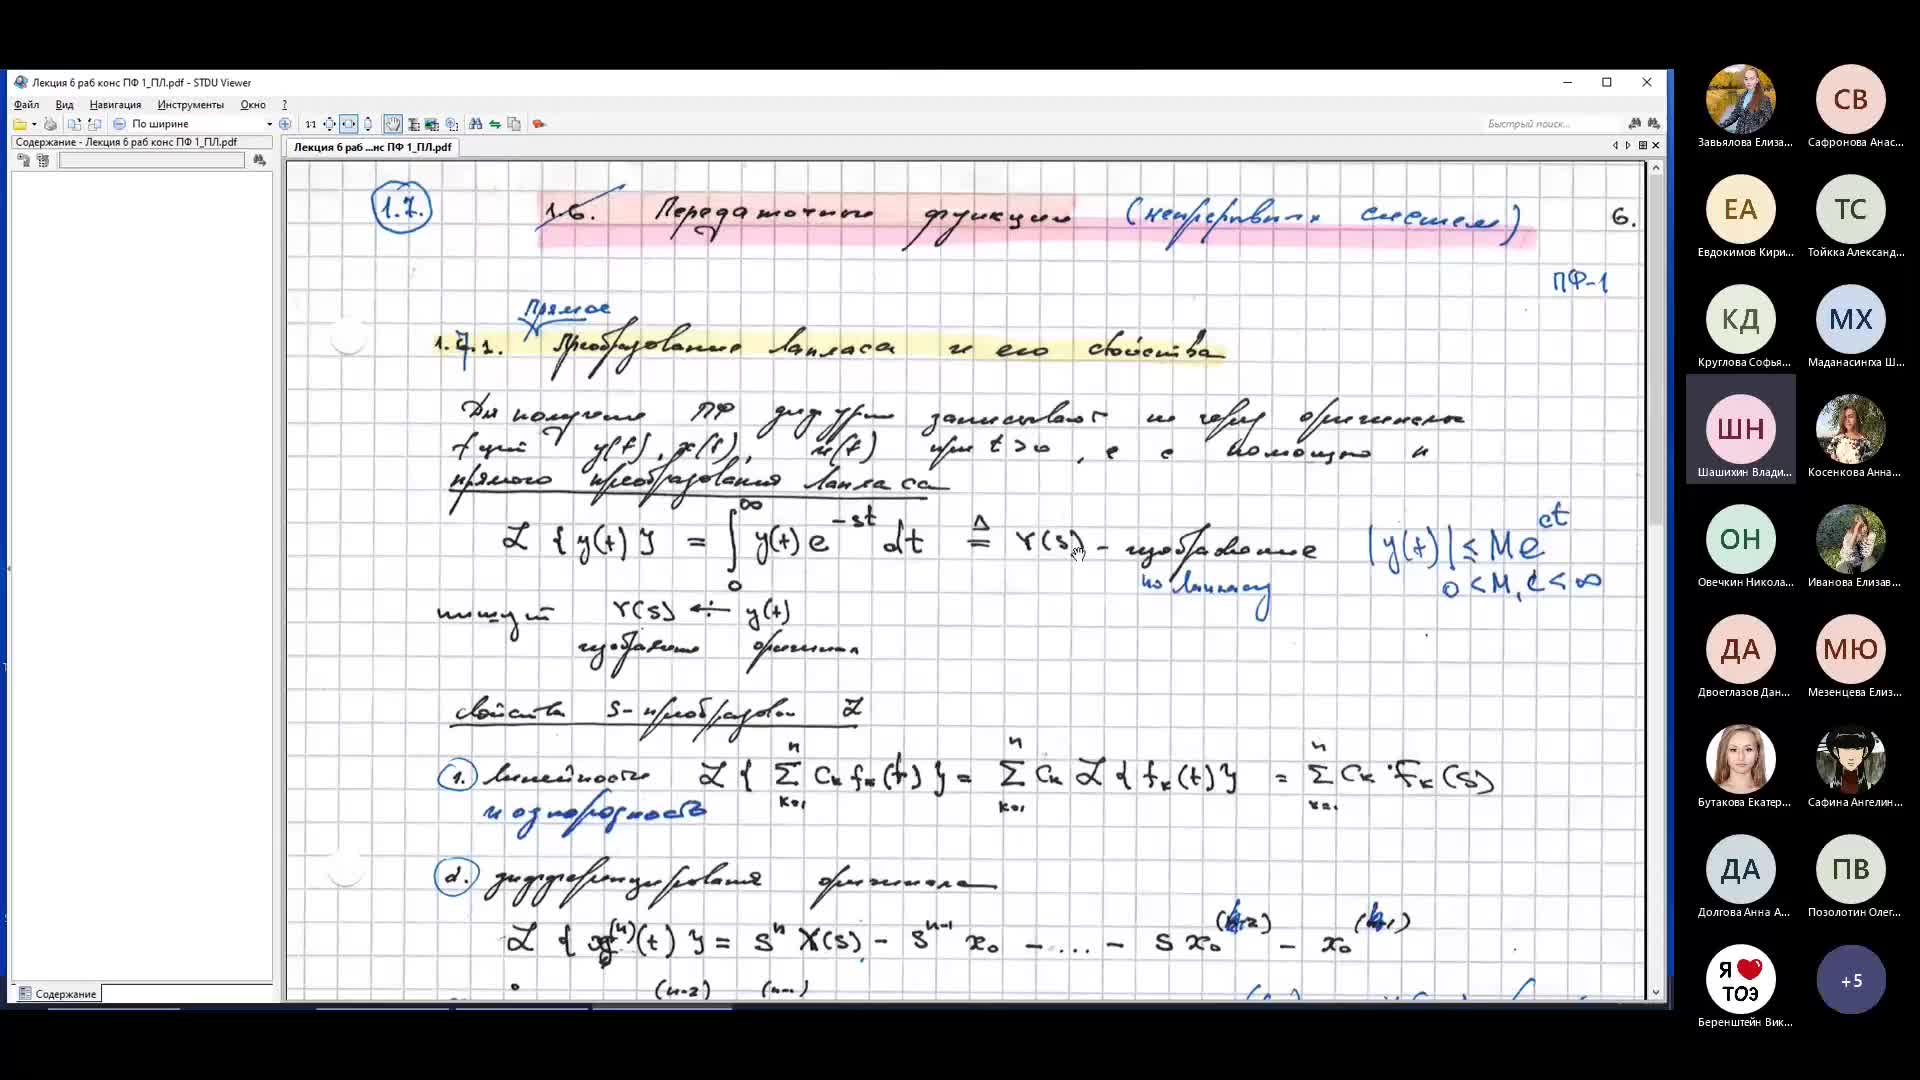 Лекция 6 раб конс ПФ 1_ПЛ.pdf - STDU Viewer
Файл Вид Навигация Инструменты Окно ?
По ширине
1:1
Быстрый поиск...
Содержание - Лекция 6 раб конс ПФ 1_ПЛ.pdf
Лекция 6 раб ...нс ПФ 1_ПЛ.pdf
1.7. 1.6. Передаточные функции (непрерывных систем) 6.
ПФ-1
Прямое
1.7.1. Преобразование Лапласа и его свойства
Для получения ПФ диф ур записывают не через оригиналы
функций y(t), x(t), u(t) при t>0, а с помощью
прямого преобразования Лапласа
ℒ {y(t)} = ∫₀^∞ y(t) e^{-st} dt ≜ Y(s) - изображение |y(t)| ≤ M e^{ct}
по Лапласу 0 < M, c < ∞
пишут Y(s) ←· y(t)
изображение оригинал
свойства s-преобразован ℒ
1. линейность ℒ { Σ_{k=1}^{n} C_k f_k(t) } = Σ_{k=1}^{n} C_k ℒ { f_k(t) } = Σ_{k=1}^{n} C_k · F_k(s)
и однородность
2. дифференцирования оригинала
= s^n X(s) - s^{n-1} x₀ - ... - s x₀ - x₀
(n-2) (n-1)
Содержание
Завьялова Елиза...
СВ
Сафронова Анас...
ЕА
Евдокимов Кири...
ТС
Тойкка Александ...
КД
Круглова Софья...
МХ
Маданасингха Ш...
ШН
Шашихин Влади...
Косенкова Анна...
ОН
Овечкин Никола...
Иванова Елизав...
ДА
Двоеглазов Дан...
МЮ
Мезенцева Елиз...
Бутакова Екатер...
Сафина Ангелин...
ДА
Долгова Анна А...
ПВ
Позолотин Олег...
Я ❤
ТОЭ
Беренштейн Вик...
+5